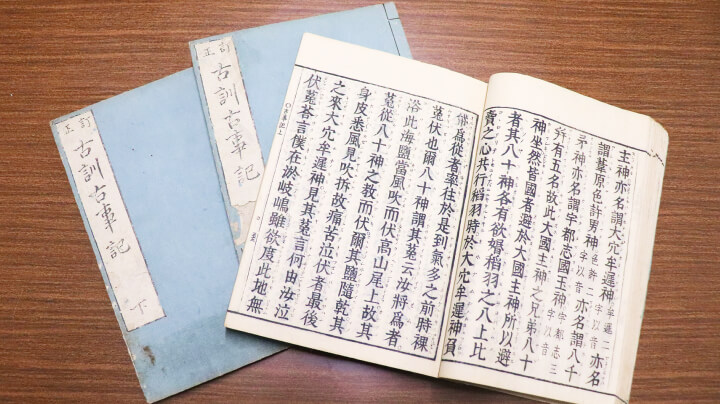 主神亦名謂大穴牟遲神牟遲二字以音亦名
謂葦原色許男神色許二字以音亦名謂八千
矛神亦名謂宇都志國玉神宇都志三字以音
并有五名故此大國主神之兄弟八十
神坐然皆國者避於大國主神所以避
者其八十神各有欲婚稻羽之八上比
賣之心共行稻羽時於大穴牟遲神負
帒為從者率往於是到氣多之前時裸
菟伏也爾八十神謂其菟云汝將為者
浴此海鹽當風吹而伏高山尾上故其
菟從八十神之教而伏爾其鹽隨乾其
身皮悉風見吹拆故痛苦泣伏者最後
之來大穴牟遲神見其菟言何由汝泣
伏菟答言僕在淤岐嶋雖欲度此地無
訂正
古訓古事記
訂正
古訓古事記
下